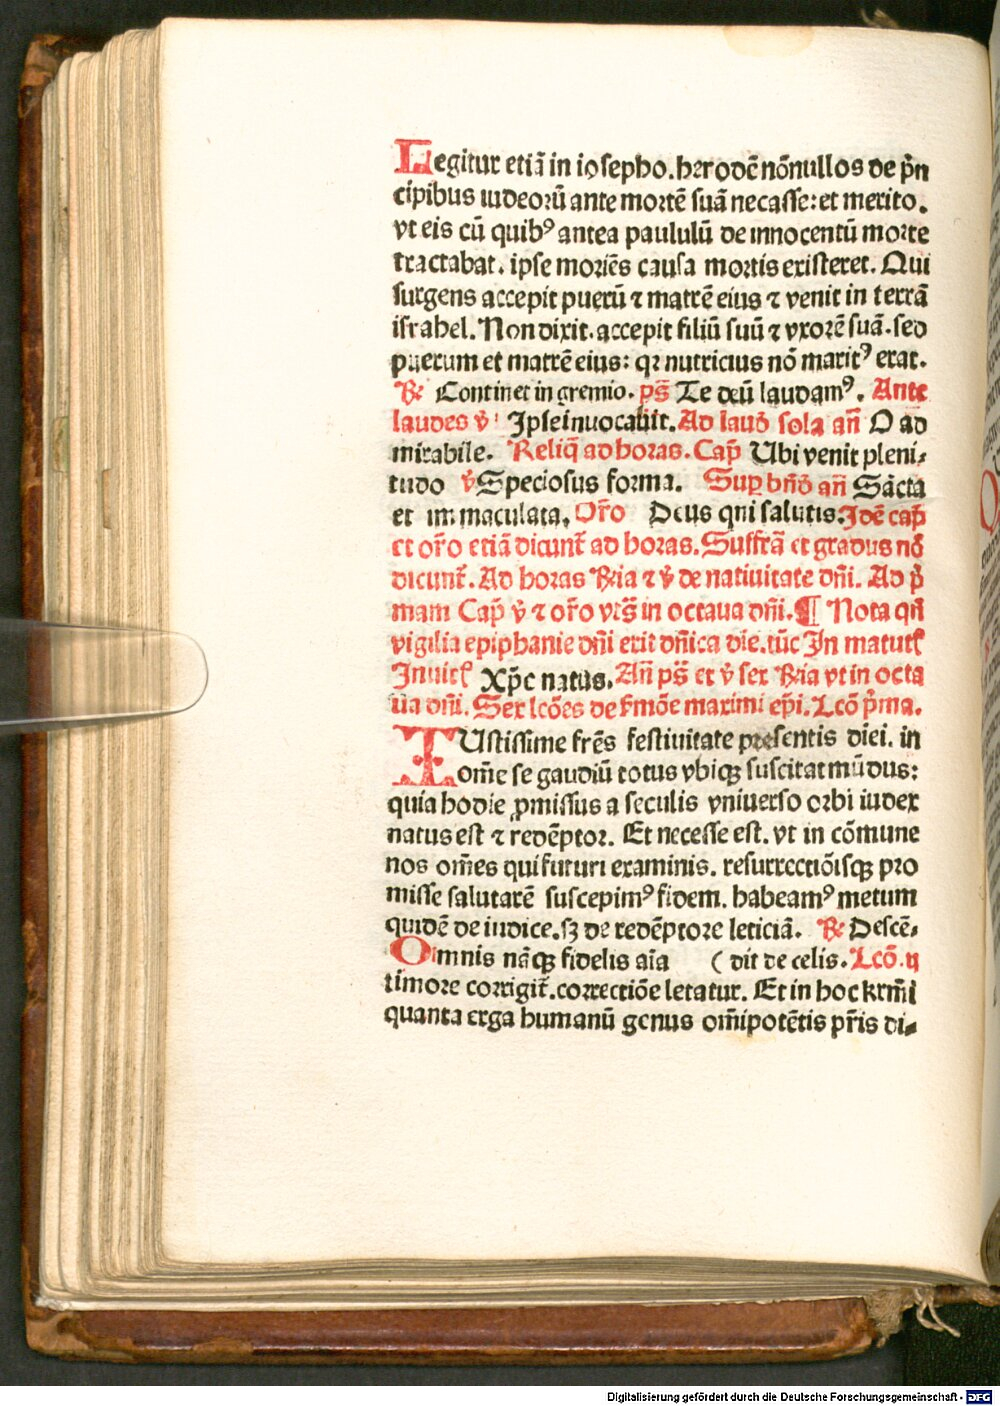 Legitur etiã in iosepho. herodẽ nõnullos de p̃n
cipibus iudeoꝝũ ante mortẽ suã necasse: et merito.
vt eis cũ quibꝰ antea paululũ de innocentũ morte
tractabat. ipse moriẽs causa mortis existeret. Qui
surgens accepit puerũ ⁊ matrẽ eius ⁊ venit in terrã
israhel. Non dixit. accepit filiũ suũ ⁊ vxorẽ suã. sed
puerum et matrẽ eius: qꝛ nutricius nõ maritꝰ erat.
℟ Continet in gremio. ps̃ Te deũ laudamꝰ. Ante
laudes v̾ Ipse inuocauit. Ad laud̾ sola añ O ad
mirabile. Reliq̃ ad horas. Cap̃ Ubi venit pleni-
tudo v̾ Speciosus forma. Sup bñd̾ añ Sãcta
et immaculata. Or̃o Deus qui salutis. Idẽ cap̃
et or̃o etiã dicunt̃ ad horas. Suffrã et gradus nõ
dicunt̃. Ad horas ℟ria ⁊ v̾ de natiuitate dñi. Ad p̾
mam Cap̃ v̾ ⁊ or̃o vts̃ in octaua dñi. ¶ Nota qñ
vigilia epiphanie dñi erit dñica die. tũc In matutꝭ
Inuitꝭ Xp̃c natus. Añ ps̃ et v̾ sex ℟ria vt in octa
ua dñi. Sex lcões de s̾mõe maximi ep̃i. Lcõ p̾ma.
IUstissime frẽs festiuitate presentis diei. in
om̃e se gaudiũ totus vbiqꝫ suscitat mũdus:
quia hodie ꝓmissus a seculis vniuerso orbi iudex
natus est ⁊ redẽptor. Et necesse est. vt in cõmune
nos om̃es qui futuri examinis. resurrectiõisqꝫ pro
misse salutarẽ suscepimꝰ fidem. habeamꝰ metum
quidẽ de iudice. sꝫ de redẽptore leticiã. ℟ Descẽ-
Omnis nãqꝫ fidelis aĩa ( dit de celis. Lcõ. ij
timore corrigit̃. correctiõe letatur. Et in hoc kr̃mi
quanta erga humanũ genus om̃ipotẽtis pr̃is di-
Digitalisierung gefördert durch die Deutsche Forschungsgemeinschaft - DFG